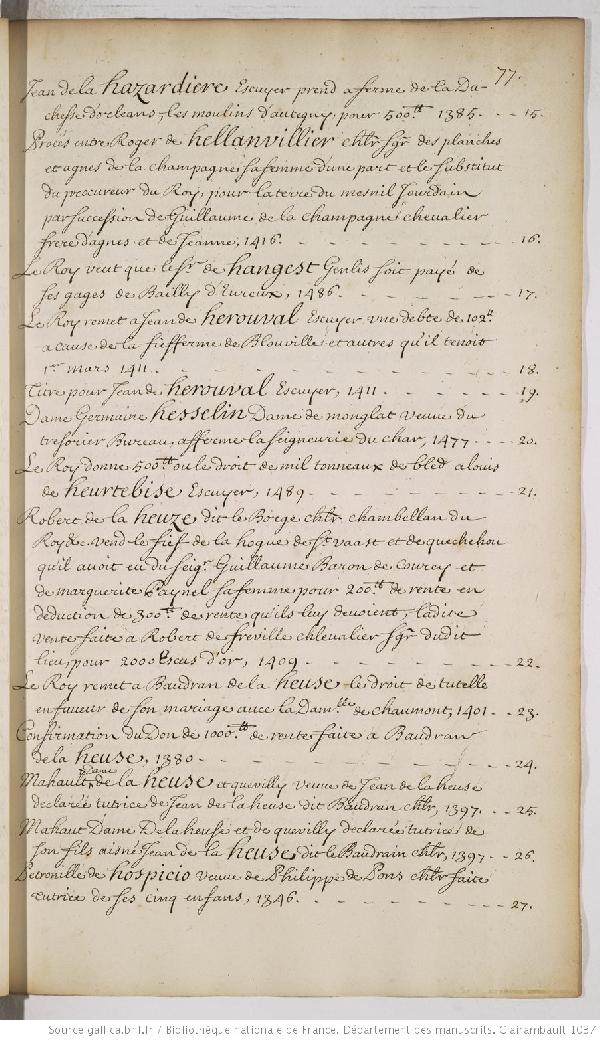 77.
Jean de la hazardiere Escuyer prend a ferme de la Du-
chesse d'orleans, les moulins d'autegny, pour 500tt 1385. - - - 15.
Procés entre Roger de hellanvillier chlr sgr des planches
et agnes de la champagne sa femme d'une part et le substitut
du procureur du Roy, pour la terre du mesnil Jourdain
par succession de Guillaume de la champagne chevalier
frere d'agnes et de Jeanne, 1416. - - - - - - 16.
Le Roy veut que le sr. de hangest Genlis soit payé de
ses gages de Bailly d'Eureux, 1486. - - - - - 17.
Le Roy remet a Jean de herouval Escuyer vne debte de 102tt.
a cause de la fiefferme de Blouville et autres qu'il tenoit
1er mars 1411. - - - - - - - - 18.
Titre pour Jean de herouval Escuyer, 1411. - - - - 19.
Dame Germaine hesselin Dame de monglat veuve du
tresorier Bureau, afferme la seigneurie du char, 1477. - - - 20.
Le Roy donne 500tt ou le droit de mil tonneaux de bled a louis
de heurtebise Escuyer, 1489. - - - - - - 21.
Robert de la heuze dit le Borge chlr chambellan du
Roy &c vend le fief de la hogue de St. vaast et de quechehou
qu'il auoit eu du seigr. Guillaume Baron de Courcy et
de marguerite Paynel sa femme pour 200tt de rente en
deduction de 300tt. de rente qu'ils luy deuoient, ladite
vente faite a Robert de freville chlevalier sgr dudit
lieu, pour 2000 Escus d'or, 1409. - - - - - 22.
Le Roy remet a Baudran de la heuse le droit de tutelle
en faueur de son mariage auec la Damlle de chaumont, 1401. - - 23.
Confirmation du Don de 1000tt de rente faite a Baudran
de la heuse, 1380. - - - - - - - 24.
Mahault Dame de la heuse et quevilly veuve de Jean de la heuse
declarée tutrice de Jean de la heuse dit Baudran chlr, 1397. - - 25.
Mahaut Dame De la heuse et de quevilly declarée tutrice de
son fils aisné Jean de la heuse dit le Baudrain chlr, 1397. - 26.
Petronille de hospicio veuve de Philippe de Pons chlr faite
tutrice de ses cinq enfans, 1346. - - - - - - 27.
Source gallica.bnf.fr / Bibliothèque nationale de France. Département des manuscrits. Clairambault 1037